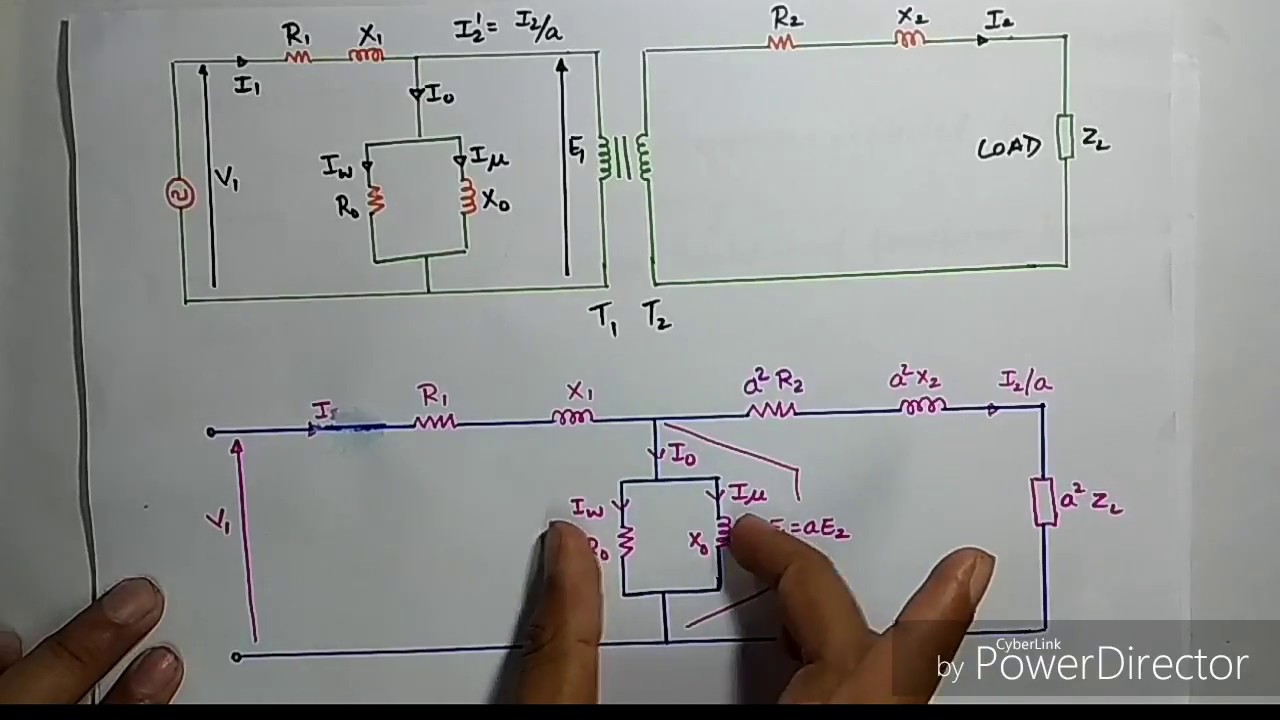 R₁ X₁ I₂' = I₂/a R₂ X₂ I₂
I₁ I₀
V₁ I_w I_μ E₁ LOAD Z_L
R₀ X₀
T₁ T₂
I₁ R₁ X₁ a² R₂ a² X₂ I₂/a
I₀
V₁ I_w I_μ a² Z_L
R₀ X₀ = aE₂
CyberLink
by PowerDirector